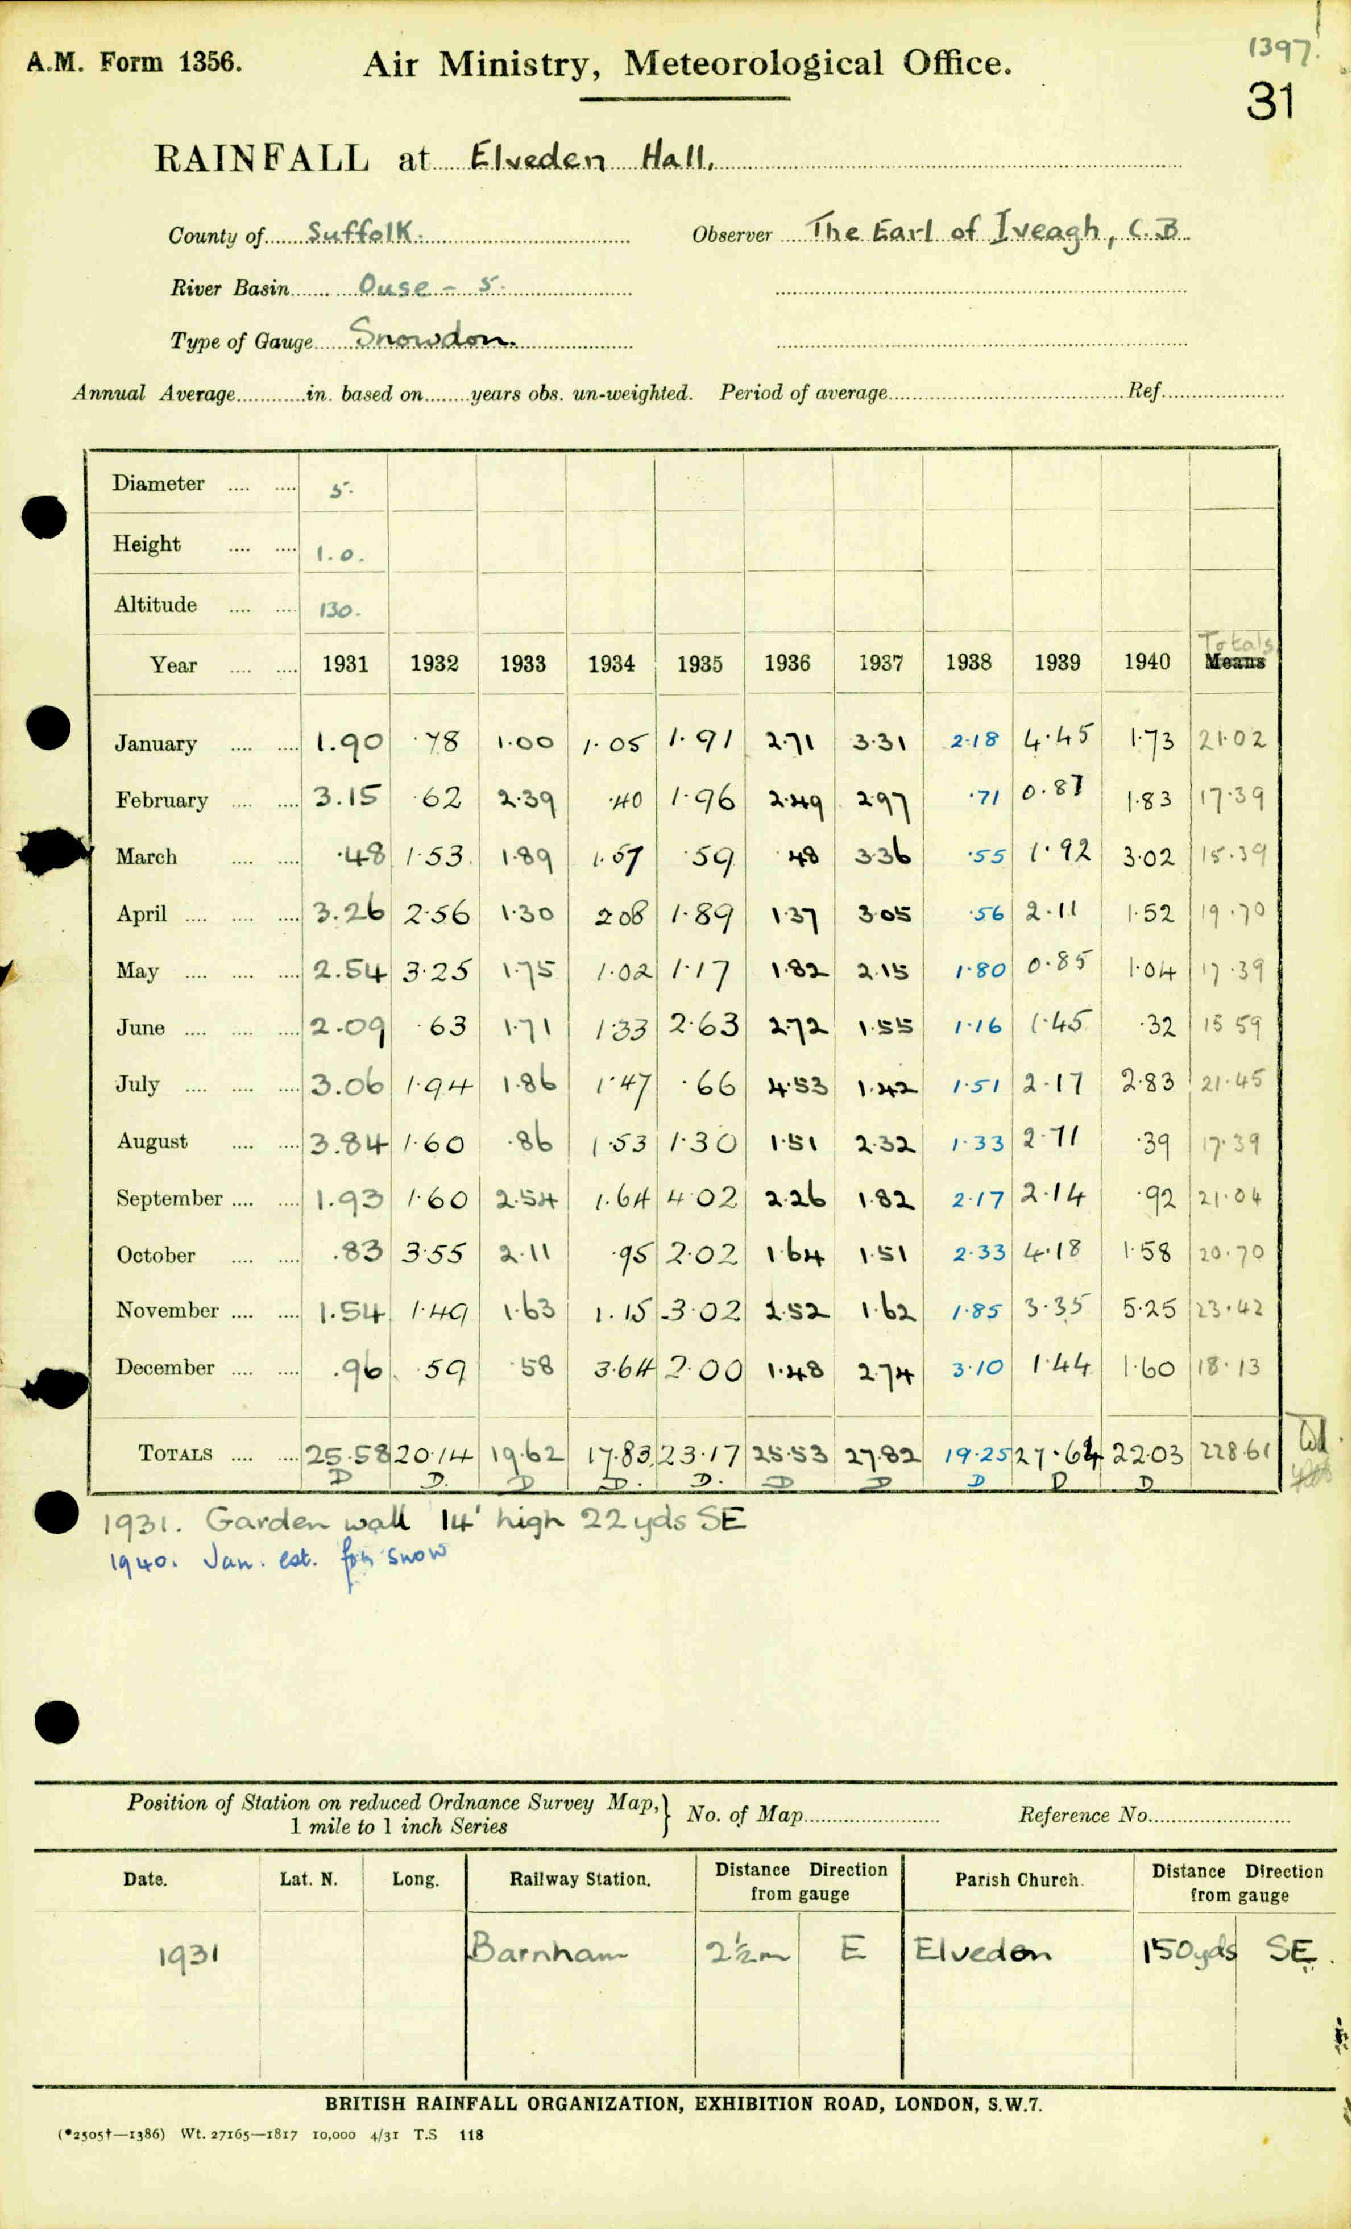 1397.
A.M. Form 1356. Air Ministry, Meteorological Office.
31
RAINFALL at Elveden Hall.
County of Suffolk. Observer The Earl of Iveagh, C.B.
River Basin Ouse - 5.
Type of Gauge Snowdon.
Annual Average in. based on years obs. un-weighted. Period of average Ref.
Diameter 5.
Height 1.0.
Altitude 130.
Totals
Year 1931 1932 1933 1934 1935 1936 1937 1938 1939 1940 Means
January 1.90 .78 1.00 1.05 1.91 2.71 3.31 2.18 4.45 1.73 21.02
February 3.15 .62 2.39 .40 1.96 2.49 2.97 .71 0.87 1.83 17.39
March .48 1.53 1.89 1.57 .59 .48 3.36 .55 1.92 3.02 15.39
April 3.26 2.56 1.30 2.08 1.89 1.37 3.05 .56 2.11 1.52 19.70
May 2.54 3.25 1.75 1.02 1.17 1.82 2.15 1.80 0.85 1.04 17.39
June 2.09 .63 1.71 1.33 2.63 2.72 1.55 1.16 1.45 .32 15 59
July 3.06 1.94 1.86 1.47 .66 4.53 1.42 1.51 2.17 2.83 21.45
August 3.84 1.60 .86 1.53 1.30 1.51 2.32 1.33 2.71 .39 17.39
September 1.93 1.60 2.54 1.64 4.02 2.26 1.82 2.17 2.14 .92 21.04
October .83 3.55 2.11 .95 2.02 1.64 1.51 2.33 4.18 1.58 20.70
November 1.54 1.49 1.63 1.15 3.02 2.52 1.62 1.85 3.35 5.25 23.42
December .96 .59 .58 3.64 2.00 1.48 2.74 3.10 1.44 1.60 18.13
TOTALS 25.58 20.14 19.62 17.83 23.17 25.53 27.82 19.25 27.64 22.03 228.61
D D. D D. D. D D D D D
1931. Garden wall 14' high 22yds SE
1940. Jan. est. for snow
Position of Station on reduced Ordnance Survey Map, 1 mile to 1 inch Series } No. of Map Reference No.
Date. Lat. N. Long. Railway Station. Distance Direction from gauge Parish Church. Distance Direction from gauge
1931 Barnham 2½m E Elveden 150yds SE.
BRITISH RAINFALL ORGANIZATION, EXHIBITION ROAD, LONDON, S.W.7.
(*2505†—1386) Wt. 27165—1817 10,000 4/31 T.S 118